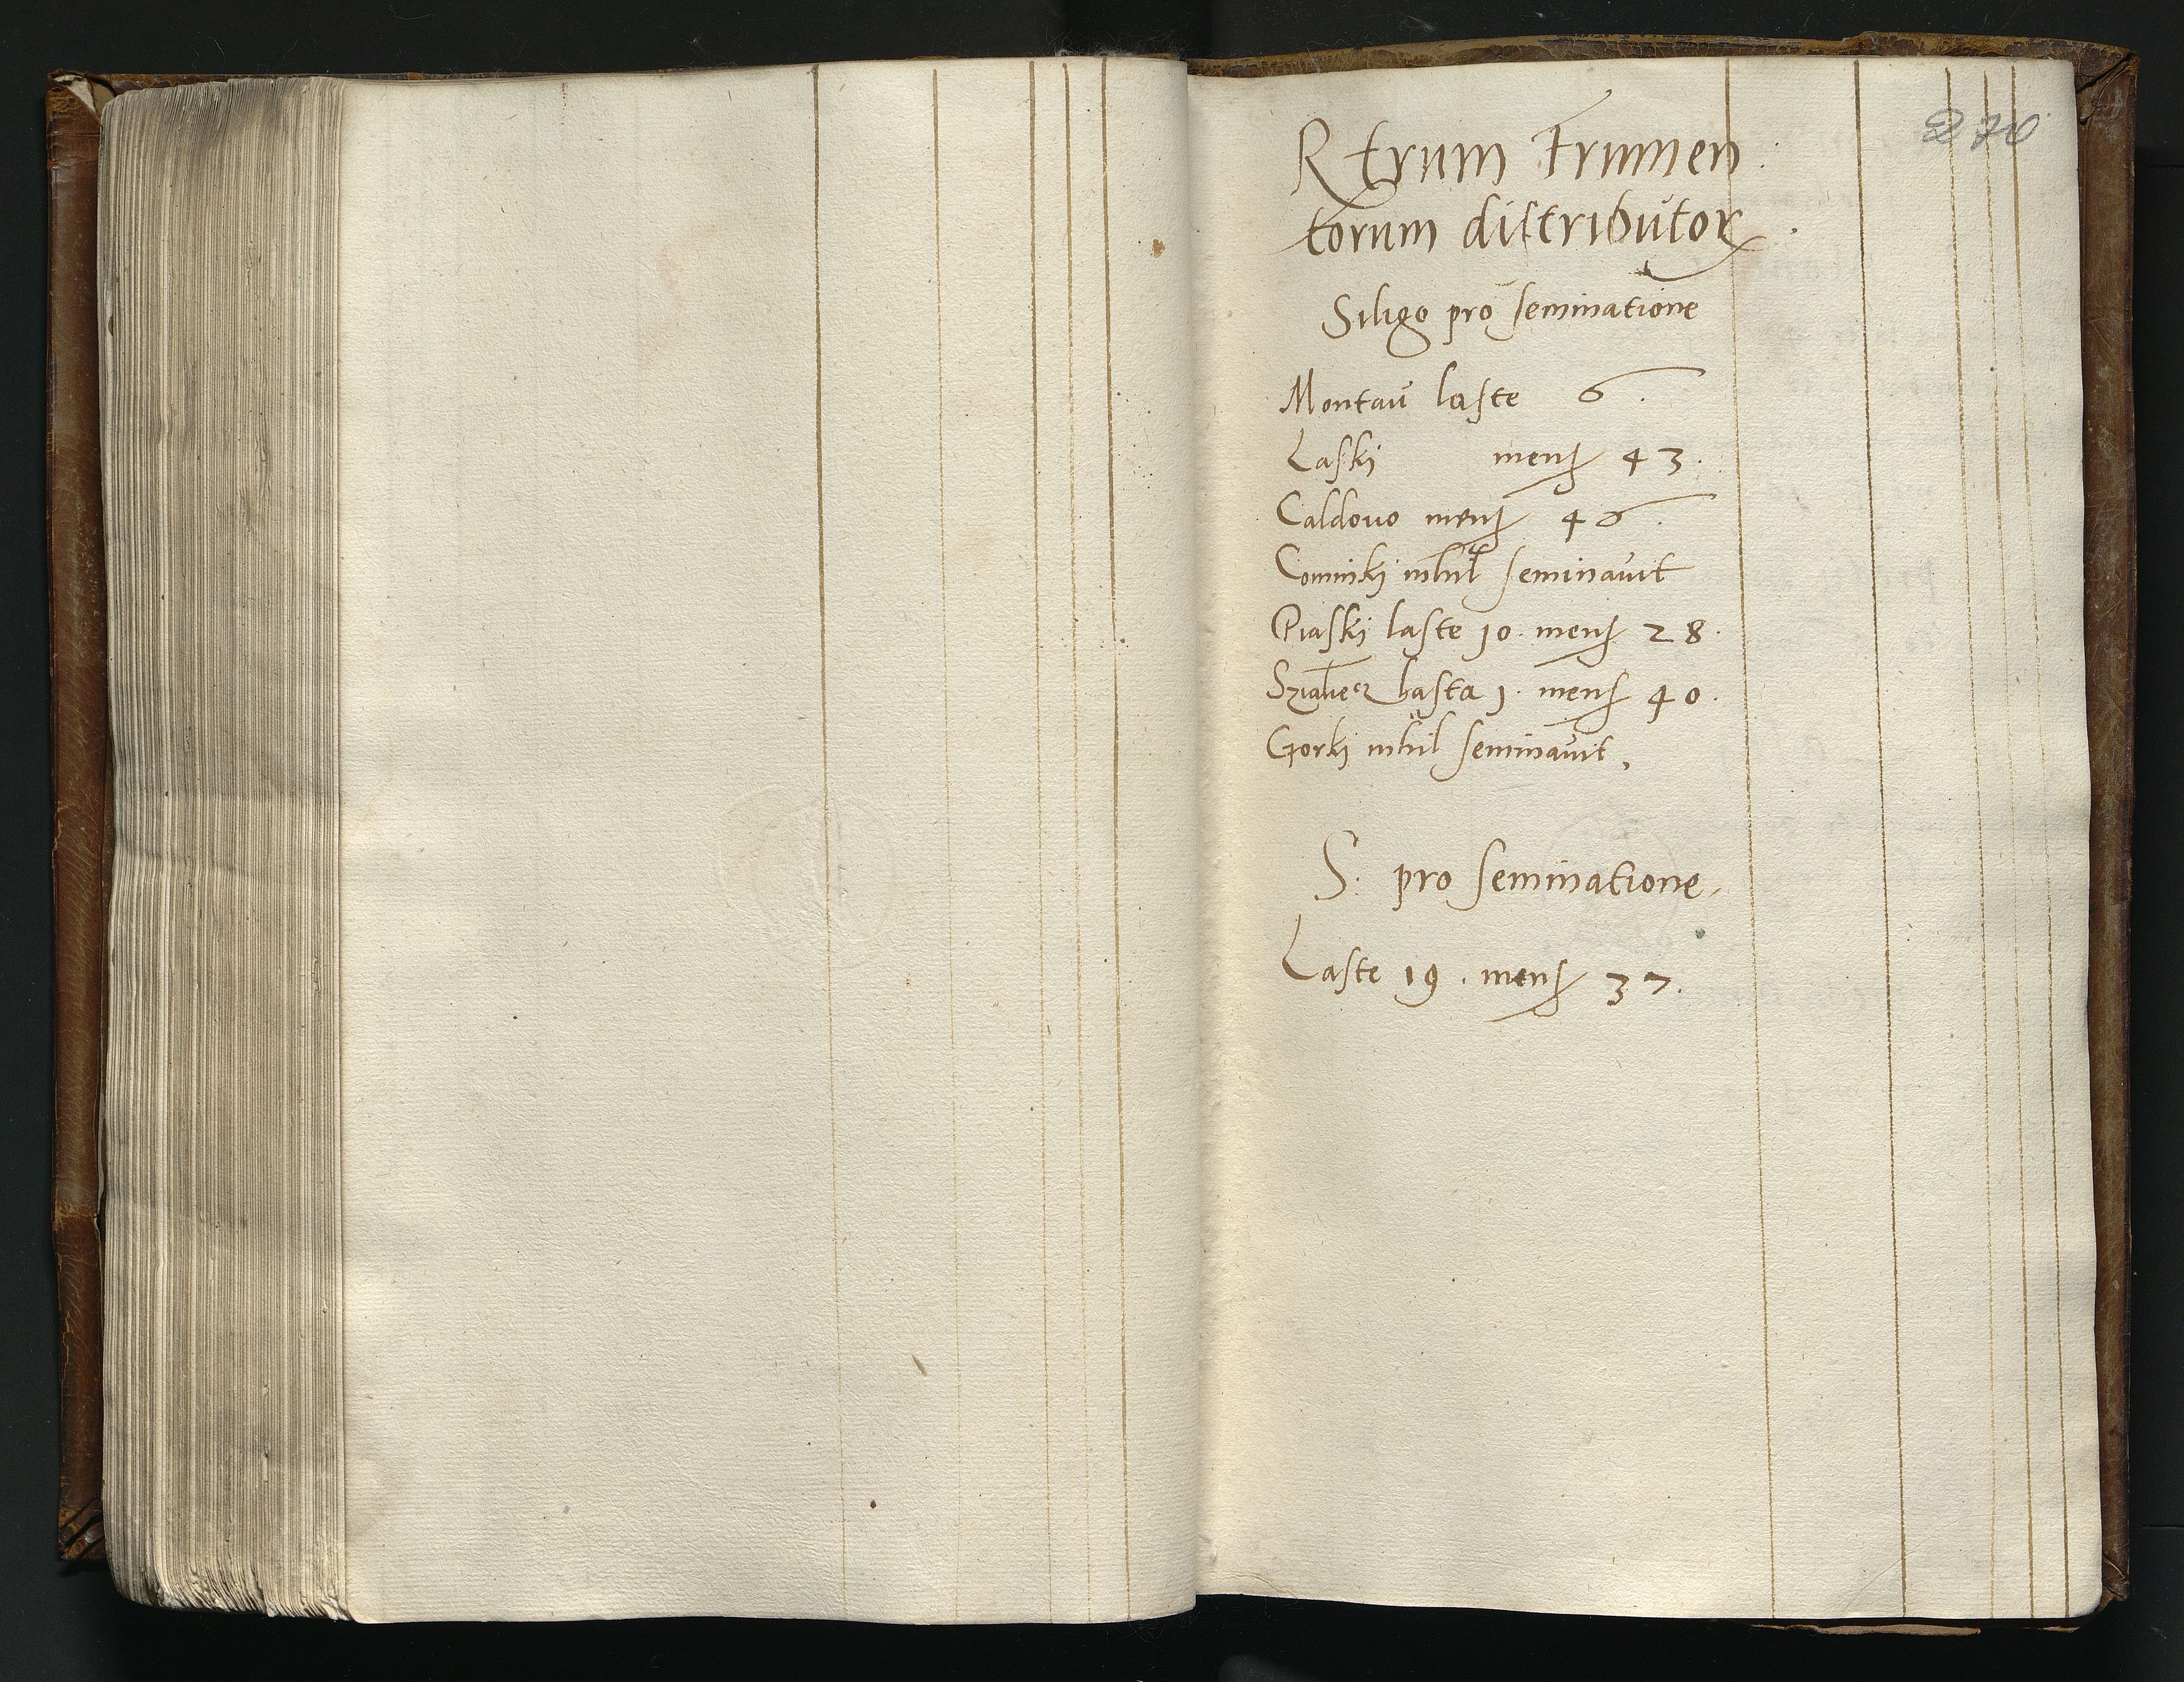 270
Rtrum Frumen
torum distributoꝝ.
Siligo pro seminatione
Montau laste 6.
Laski mensꝭ 43.
Caldouo mensꝭ 46.
Cominki nihil seminauit
Piaski laste 10. mensꝭ 28.
lasta 1. mensꝭ 40.
Gorki nihil seminauit.
S. pro seminatione.
Laste 19. mensꝭ 37.